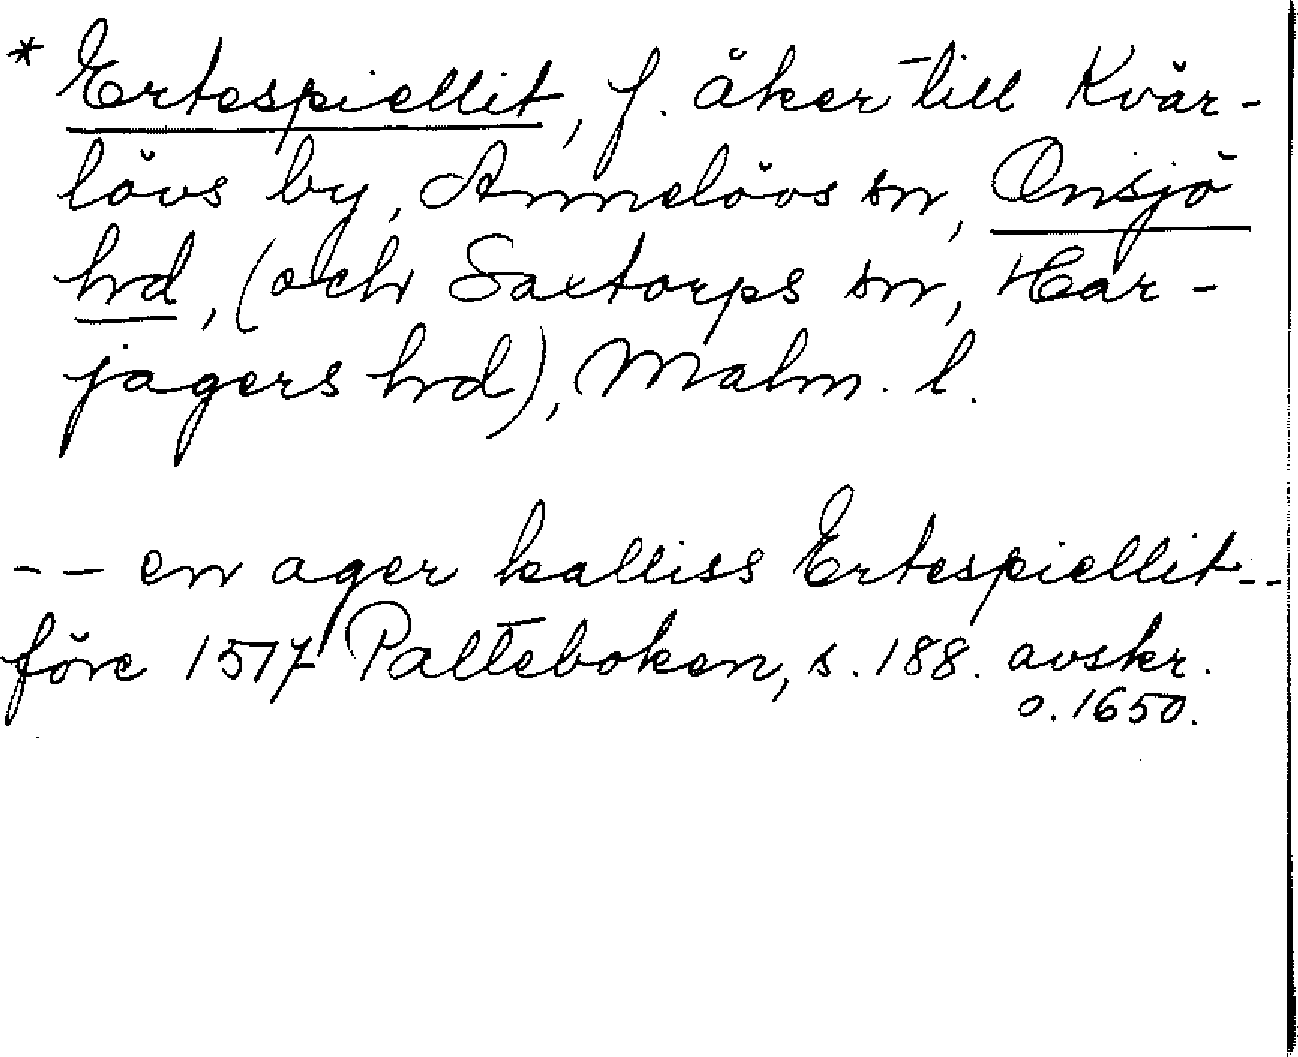 * Ertespiellit, f. åker till Kvär-
lövs by, Annelövs sn, Onsjö
hd, (och Saxtorps sn, Har-
jagers hd), Malm. l.
-- en ager kalliss Ertespiellit--
före 1517 Palteboken, s. 188. avskr.
o. 1650.